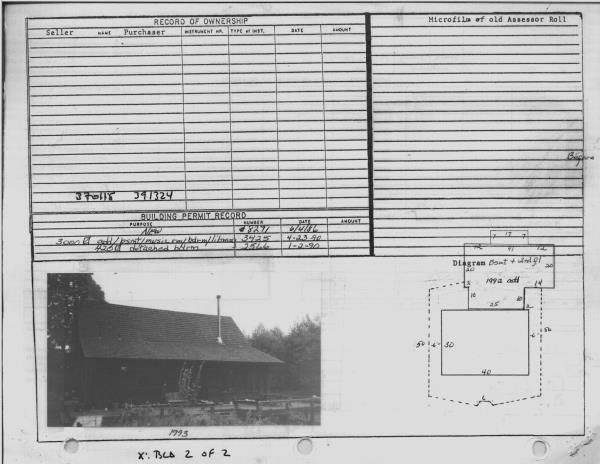 RECORD OF OWNERSHIP
Seller NAME Purchaser INSTRUMENT NR. TYPE of INST. DATE AMOUNT
Microfilm of old Assessor Roll
370118 391324
BUILDING PERMIT RECORD
PURPOSE NUMBER DATE AMOUNT
New #8291 6/4/86
3000 add/bsmt/music rm/bdrm/library 3425 4-23-90
420 detached barn 2566 1-2-90
7 17 7
12 41 12
Diagram Bsmt + 2nd fl
20 20
1992 add
5 14
10 10
25 2
50 6 30 6 50
40
6
1993
X: BLD 2 OF 2